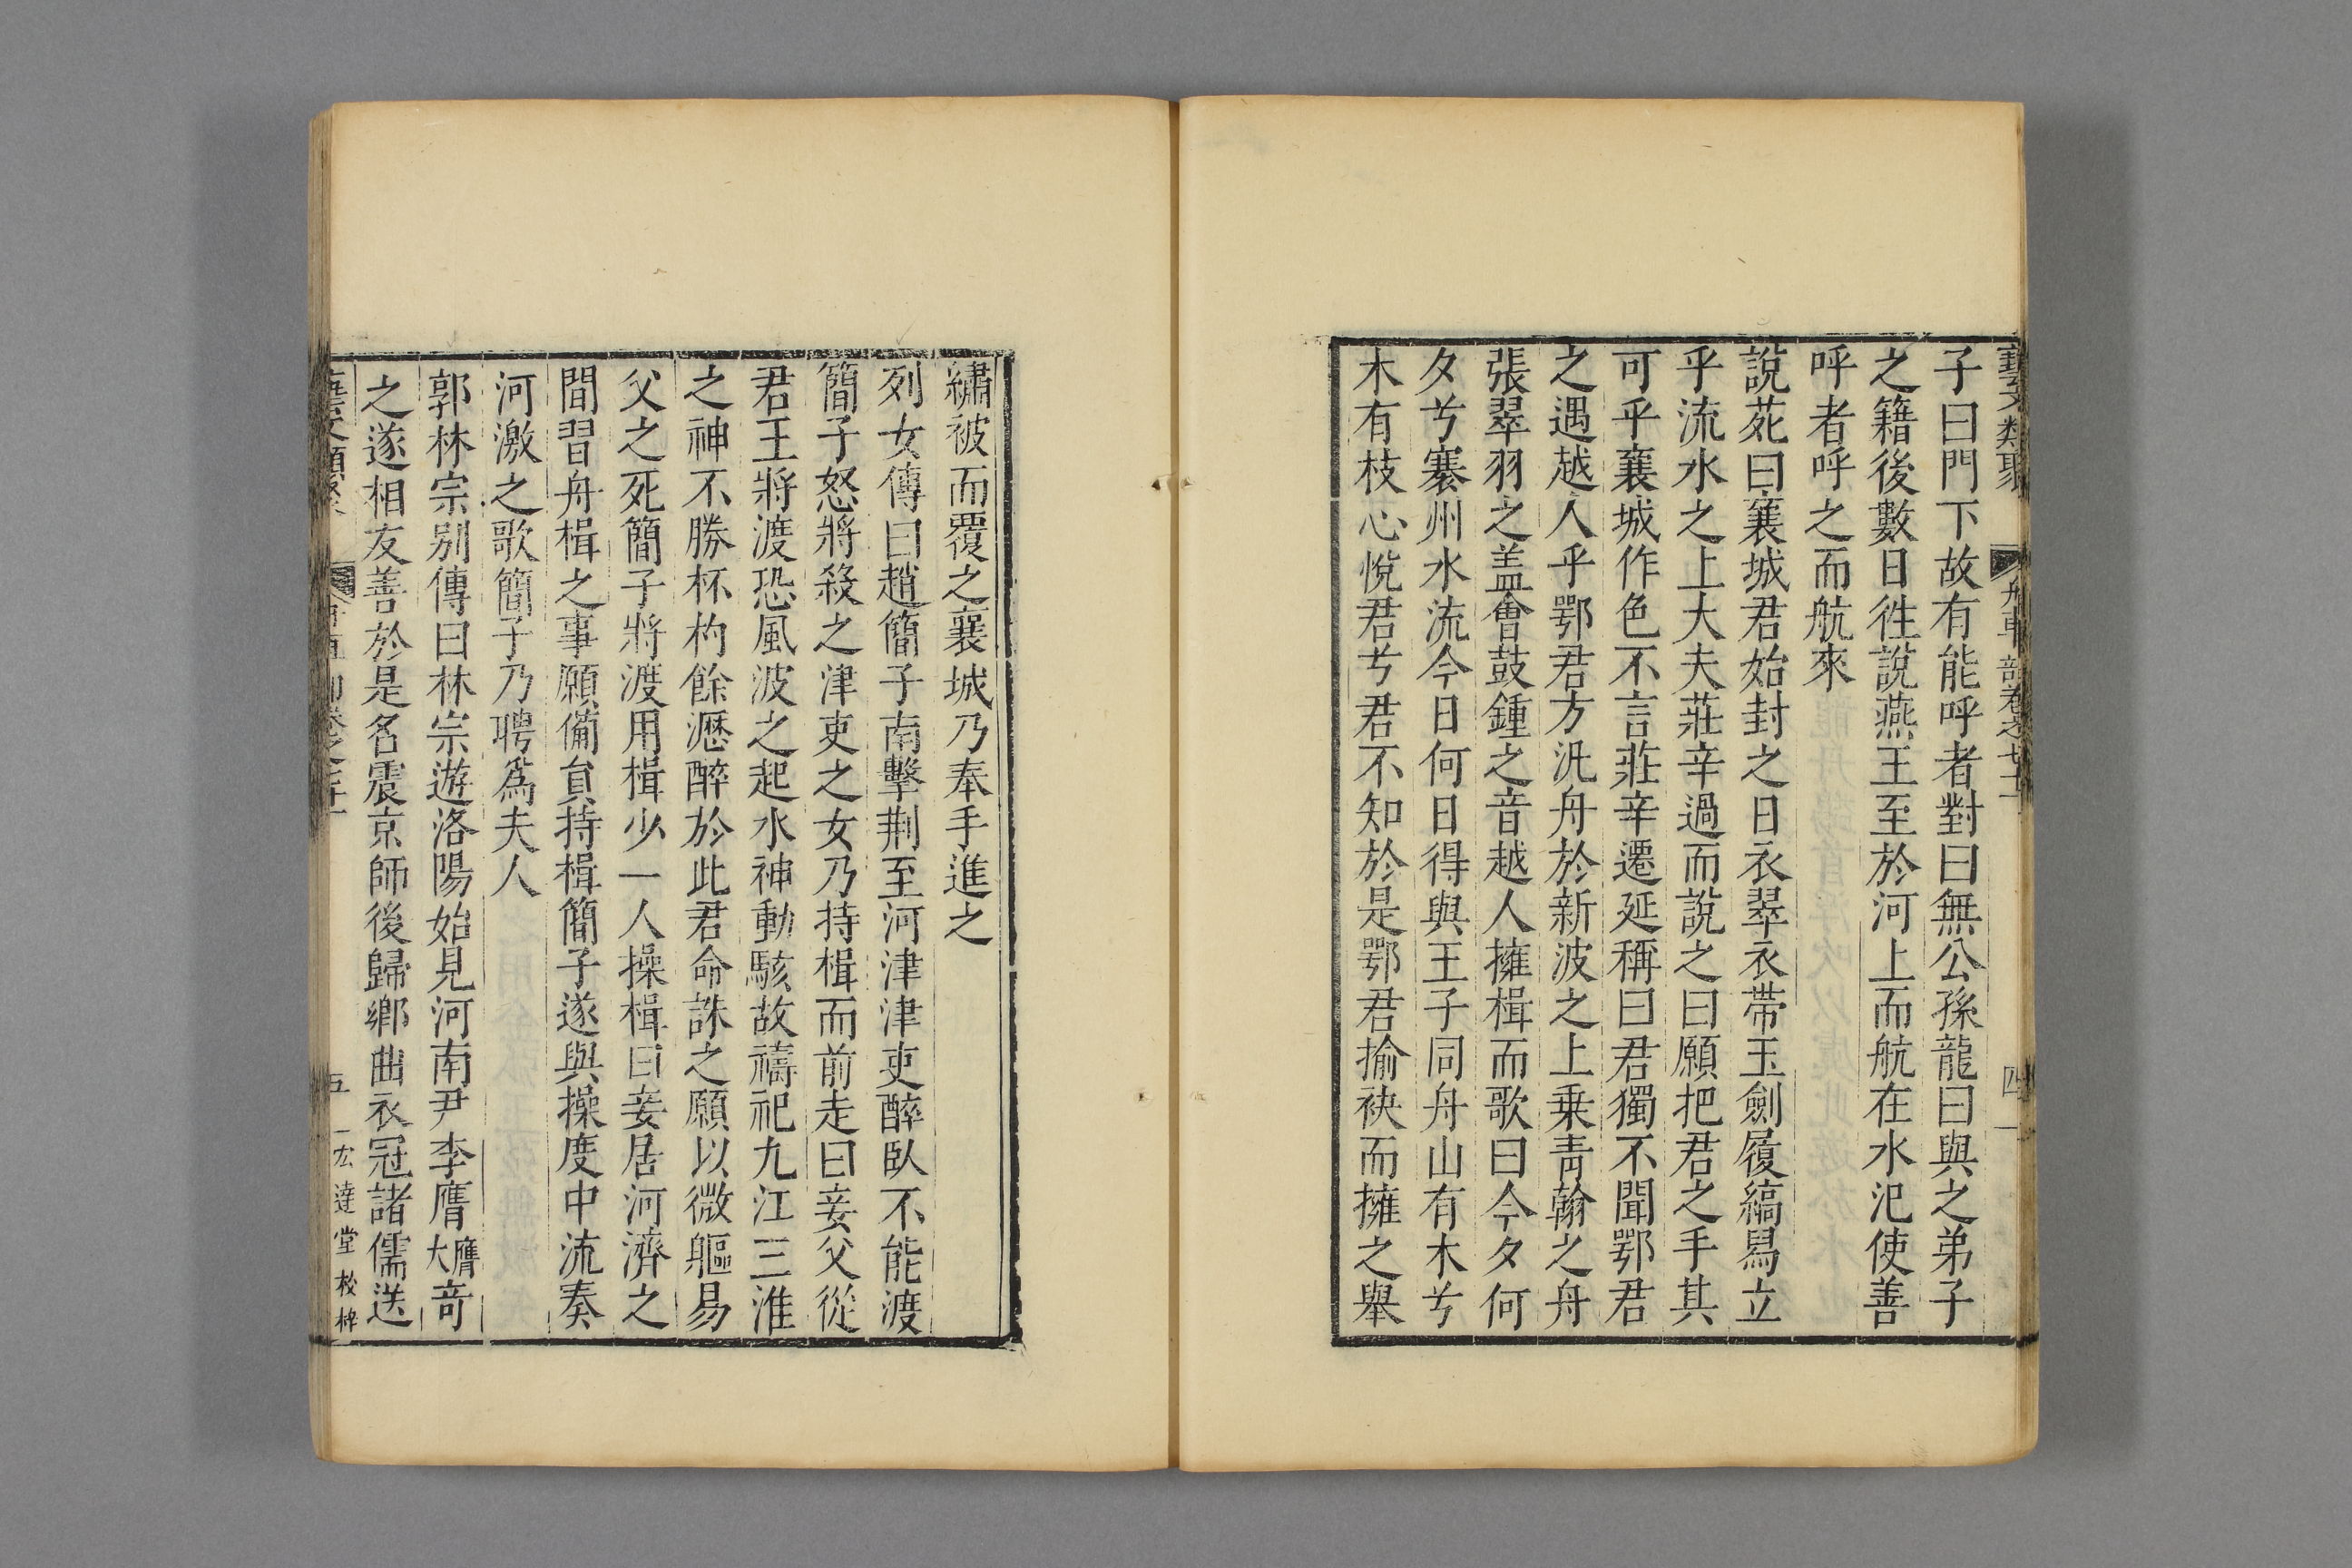 藝文類聚 舟車部卷之七十一 四
子曰門下故有能呼者對曰無公孫龍曰與之弟子
之籍後數日徃說燕王至於河上而航在水汜使善
呼者呼之而航來
說苑曰襄城君始封之日衣翠衣帶玉劍履縞舄立
乎流水之上大夫莊辛過而說之曰願把君之手其
可乎襄城作色不言莊辛遷延稱曰君獨不聞鄂君
之遇越人乎鄂君方汎舟於新波之上乗青翰之舟
張翠羽之盖會鼓鍾之音越人擁楫而歌曰今夕何
夕兮搴州水流今日何日得與王子同舟山有木兮
木有枝心悅君兮君不知於是鄂君揄袂而擁之舉
繡被而覆之襄城乃奉手進之
列女傳曰趙簡子南擊荆至河津津吏醉臥不能渡
簡子怒將殺之津吏之女乃持楫而前走曰妾父從
君王將渡恐風波之起水神動駭故禱祀九江三淮
之神不勝杯杓餘瀝醉於此君命誅之願以微軀易
父之死簡子將渡用楫少一人操楫曰妾居河濟之
間習舟楫之事願備員持楫簡子遂與操度中流奏
河激之歌簡子乃聘爲夫人
郭林宗别傳曰林宗遊洛陽始見河南尹李膺膺大竒
之遂相友善於是名震京師後歸鄉曲衣冠諸儒送
五 宏達堂校椊